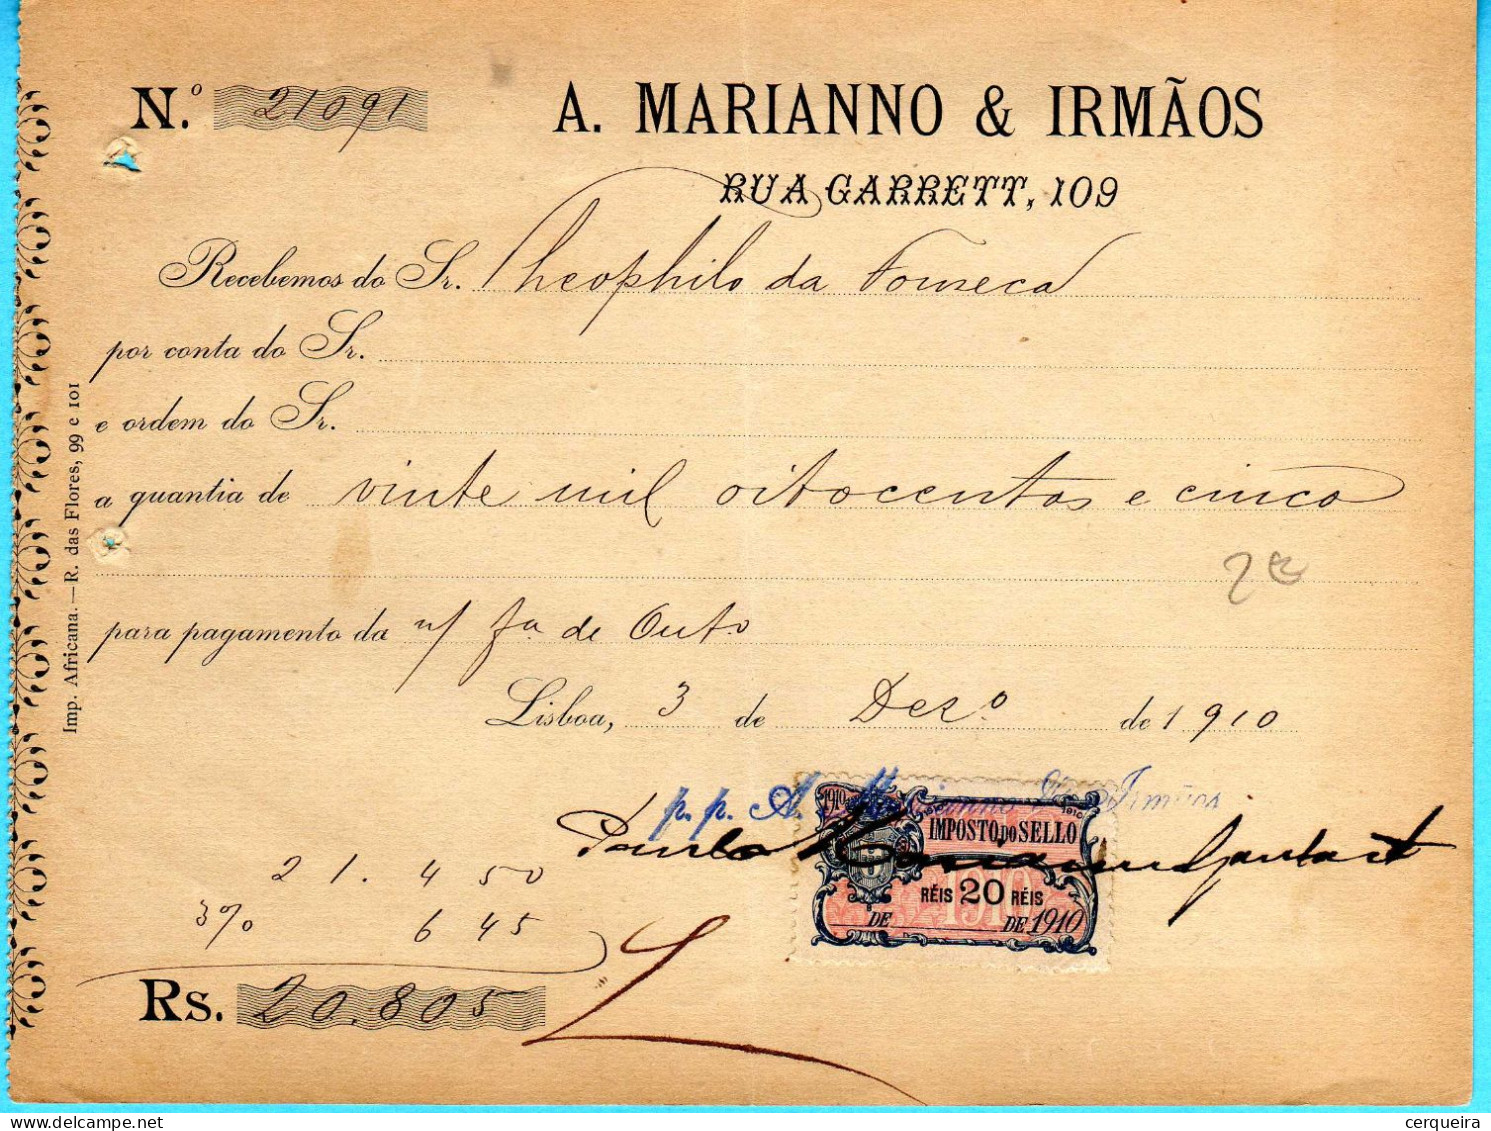 N.º 21091
A. MARIANNO & IRMÃOS
RUA GARRETT, 109
Recebemos do Sr. Theophilo da Fonseca
por conta do Sr.
e ordem do Sr.
a quantia de vinte mil oitocentos e cinco
para pagamento da n/ fa. de Outo
Lisboa, 3 de Dezo. de 1910
p. p. A. Marianno & Irmãos
1910
IMPOSTO DO SELLO
RÉIS 20 RÉIS
1910
DE DE 1910
21.450
3% 645
Rs. 20.805
Imp. Africana. — R. das Flores, 99 e 101
cerqueira